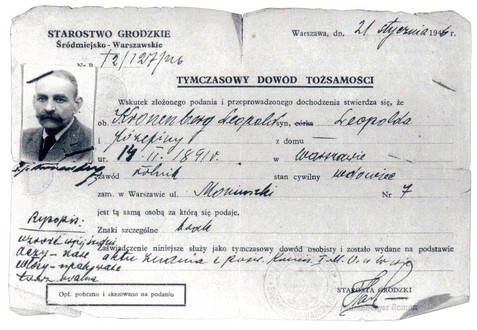 STAROSTWO GRODZKIE
Śródmiejsko-Warszawskie
Warszawa, dn. 21 stycznia 1946 r.
TYMCZASOWY DOWÓD TOŻSAMOŚCI
Wskutek złożonego podania i przeprowadzonego dochodzenia stwierdza się, że
ob. Kronenberg Leopold syn, córka Leopolda
Józefiny z domu
ur. 14.II.1891r. w Warszawie
zawód rolnik stan cywilny wdowiec
zam. w Warszawie ul. Moniuszki Nr 7
jest tą samą osobą za którą się podaje.
Znaki szczególne brak
Zaświadczenie niniejsze służy jako tymczasowy dowód osobisty i zostało wydane na podstawie
Rysopis:
wzrost
oczy
włosy
twarz owalna
STAROSTA GRODZKI
Opł. pobrano i skasowano na podaniu